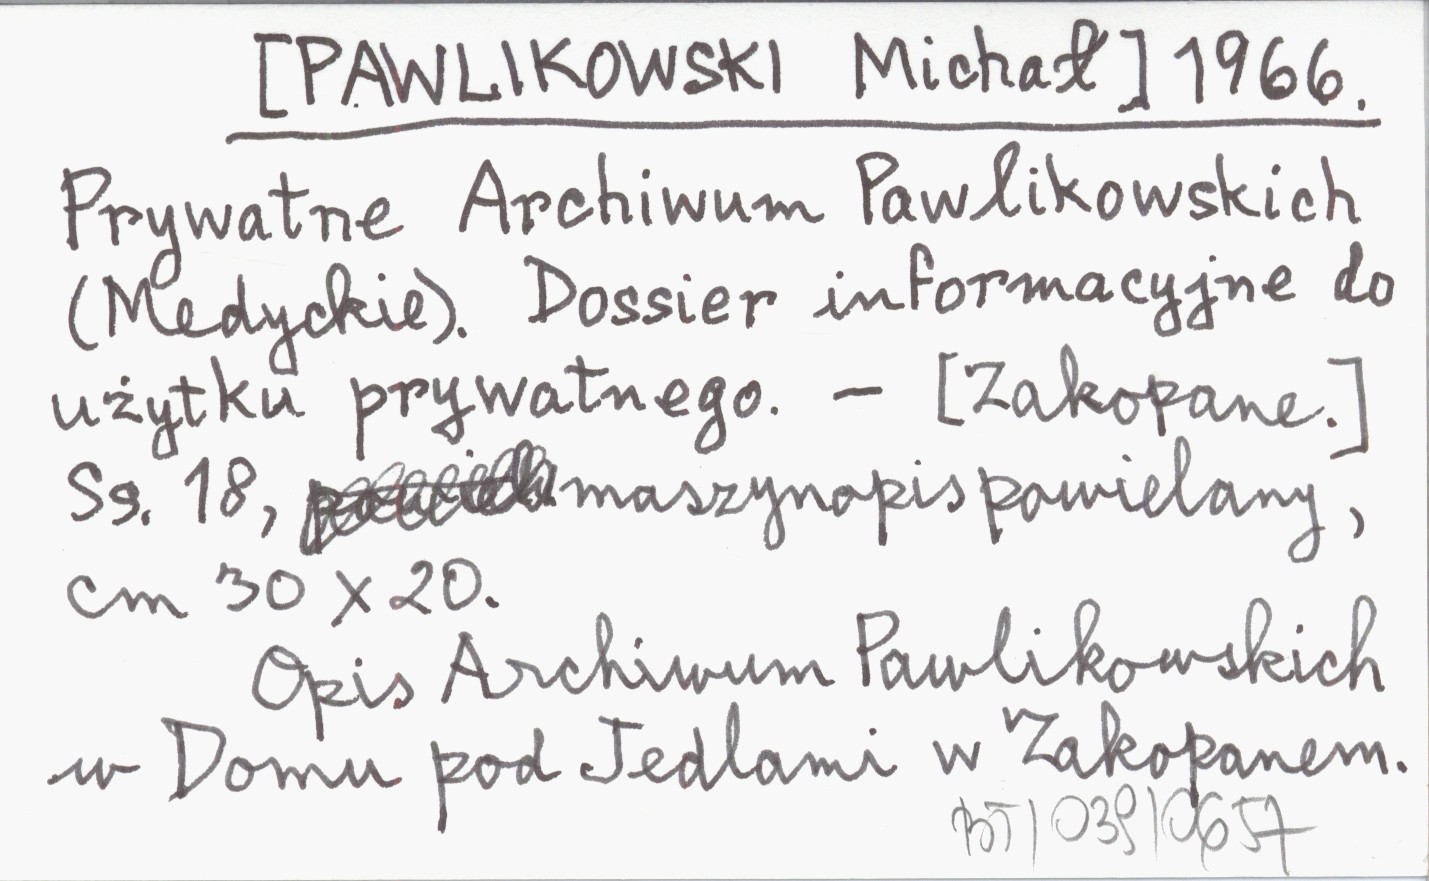 [PAWLIKOWSKI Michał] 1966.
Prywatne Archiwum Pawlikowskich
(Medyckie). Dossier informacyjne do
użytku prywatnego. – [Zakopane.]
Ss. 18, maszynopis powielany,
cm 30 x 20.
Opis Archiwum Pawlikowskich
w Domu pod Jedlami w Zakopanem.
BT/039/0657